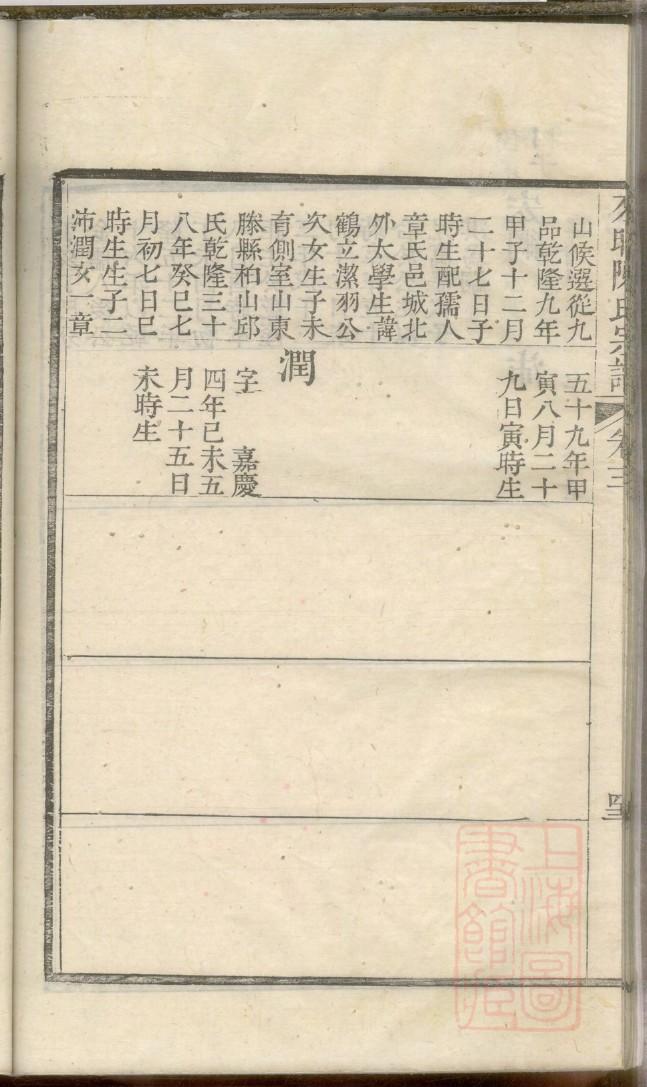 山候選從九
品乾隆九年
甲子十二月
二十七日子
時生配孺人
章氏邑城北
外太學生諱
鶴立潔羽公
次女生子未
育側室山東
滕縣柏山邱
氏乾隆三十
八年癸巳七
月初七日巳
時生生子二
沛潤女一章
五十九年甲
寅八月二十
九日寅時生
潤
字 嘉慶
四年己未五
月二十五日
未時生
陳氏宗譜
卷三
上海圖
書館藏